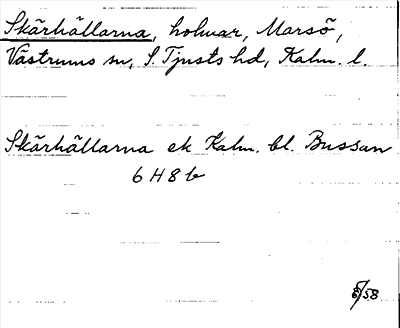 Skärhällarna, holmar, Marsö,
Västrums sn, S. Tjusts hd, Kalm. l.
Skärhällarna ek Kalm. bl. Bussan
6 H 8 b
5/58